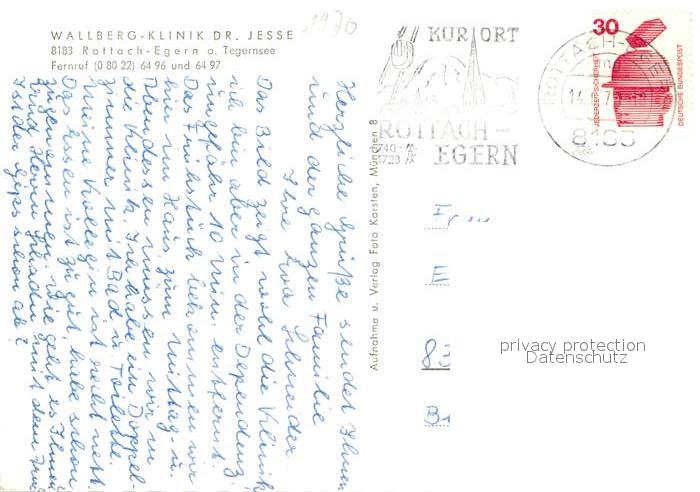 WALLBERG-KLINIK DR. JESSE
8183 Rottach-Egern a. Tegernsee
Fernruf (0 80 22) 64 96 und 64 97
1970
Herzliche Grüße sendet Ihnen
und der ganzen Familie
Ihre Eva Schneider
Das Bild zeigt wohl die Klinik
ich bin aber in der Dependenz
ungefähr 10 min. entfernt.
Das Frühstück bekommen wir
hier im Haus, zum Mittag- u.
Abendessen müssen wir in
die Klinik. Ich habe ein Doppel-
zimmer mit Bad u. Toilette.
Meine Kollegin ist recht nett.
Das Essen ist zu gut, habe schon
zugenommen. Wie geht es Ihnen
und Herrn mit dem
Ist der Gips schon ab?
Aufnahme u. Verlag Foto Karsten, München 8
KURORT
ROTTACH-
EGERN
740-
1723
ROTTACH-EGERN
14.
8183
30
JEDERZEIT SICHERHEIT
DEUTSCHE BUNDESPOST
E
83
privacy protection
Datenschutz